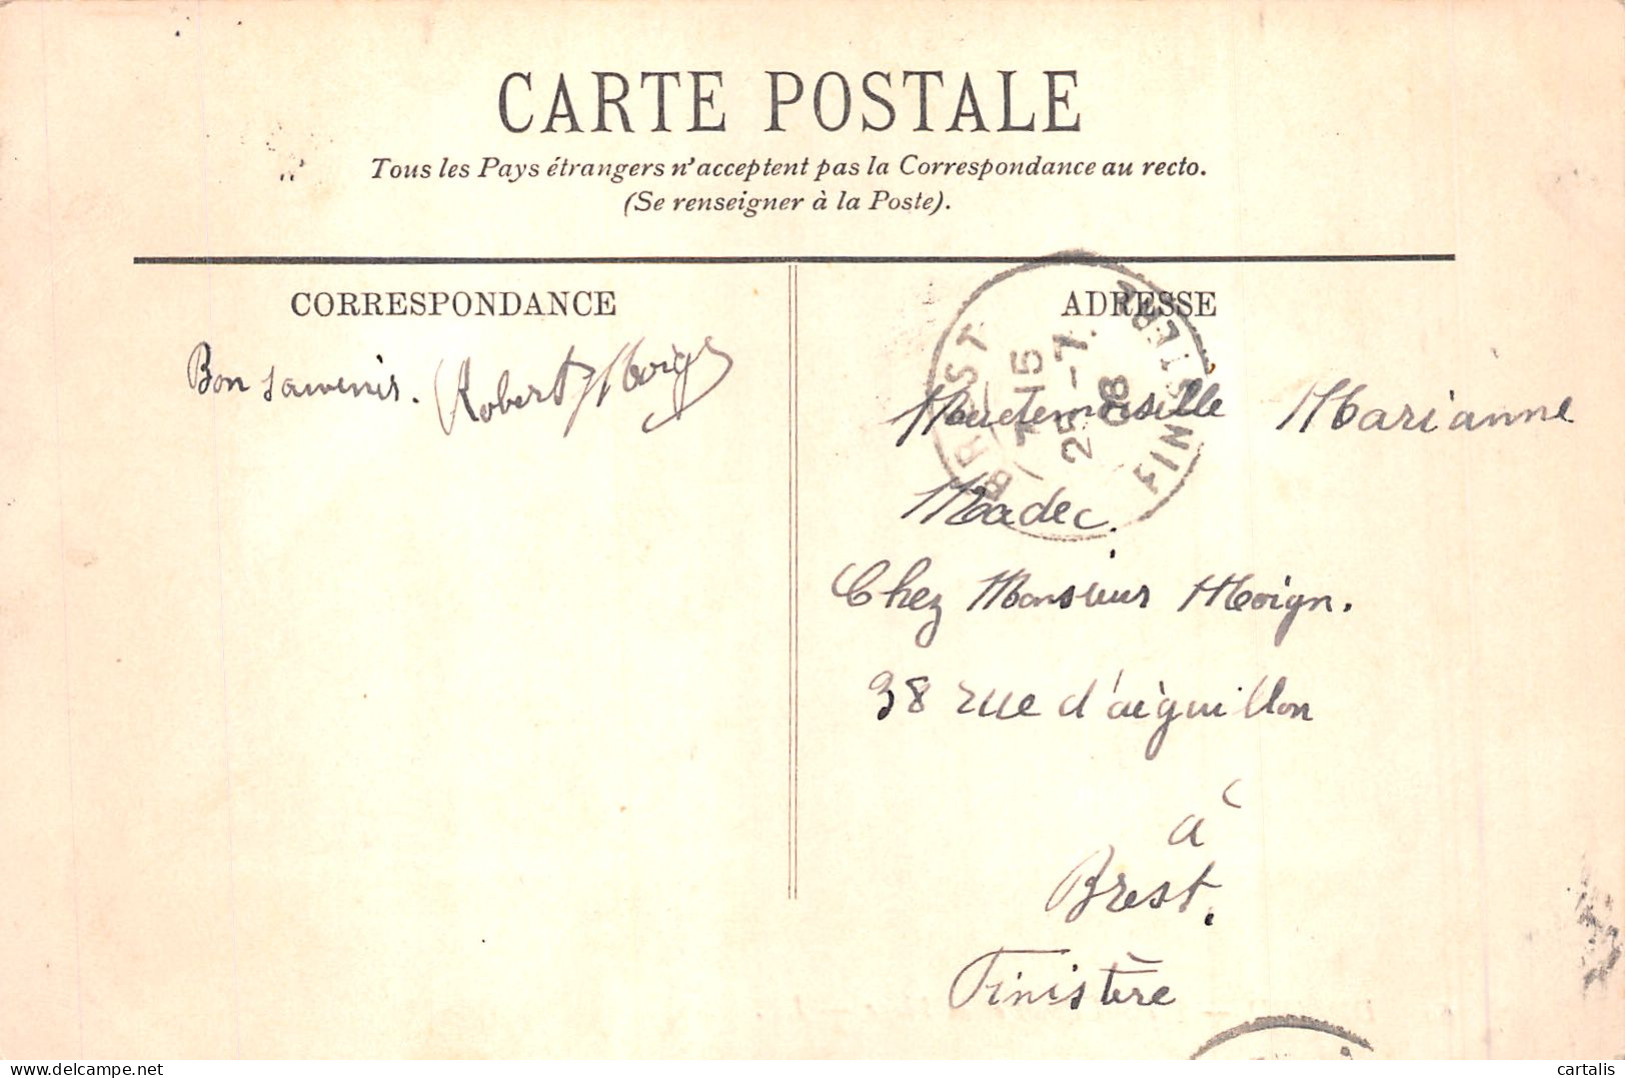 CARTE POSTALE
Tous les Pays étrangers n'acceptent pas la Correspondance au recto.
(Se renseigner à la Poste).
CORRESPONDANCE
Bon souvenir. Robert Moign
ADRESSE
BREST FINISTERE
7 15
25 -7.
08
Mademoiselle Marianne
Madec.
Chez Monsieur Moign.
38 rue d'aiguillon
à
Brest.
Finistère
delcampe.net
cartalis